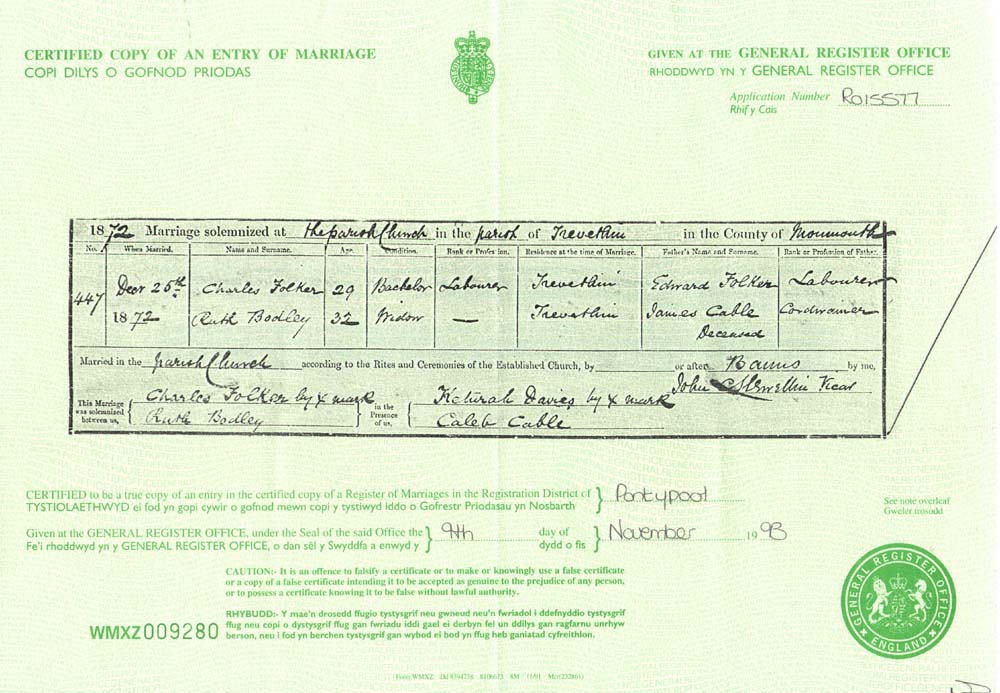 CERTIFIED COPY OF AN ENTRY OF MARRIAGE
COPI DILYS O GOFNOD PRIODAS
GIVEN AT THE GENERAL REGISTER OFFICE
RHODDWYD YN Y GENERAL REGISTER OFFICE
Application Number R015577
Rhif y Cais
1872 Marriage solemnized at the parish Church in the parish of Trevethin in the County of Monmouth
No. When Married. Name and Surname. Age. Condition. Rank or Profession. Residence at the time of Marriage. Father's Name and Surname. Rank or Profession of Father.
447 Decr 25th Charles Folker 29 Bachelor Labourer Trevethin Edward Folker Labourer
1872 Ruth Bodley 32 Widow — Trevethin James Cable Cordwainer
Deceased
Married in the parish Church according to the Rites and Ceremonies of the Established Church, by or after Banns by me,
John Vicar
This Marriage was solemnized between us, Charles Folker by x mark in the Presence of us, Keturah Davies by x mark
Ruth Bodley Caleb Cable
CERTIFIED to be a true copy of an entry in the certified copy of a Register of Marriages in the Registration District of Pontypool
TYSTIOLAETHWYD ei fod yn gopi cywir o gofnod mewn copi y tystiwyd iddo o Gofrestr Priodasau yn Nosbarth
See note overleaf
Gweler trosodd
Given at the GENERAL REGISTER OFFICE, under the Seal of the said Office the 9th day of November 1993
Fe'i rhoddwyd yn y GENERAL REGISTER OFFICE, o dan sêl y Swyddfa a enwyd y dydd o fis
CAUTION:- It is an offence to falsify a certificate or to make or knowingly use a false certificate
or a copy of a false certificate intending it to be accepted as genuine to the prejudice of any person,
or to possess a certificate knowing it to be false without lawful authority.
RHYBUDD:- Y mae'n drosedd ffugio tystysgrif neu gwneud neu'n fwriadol i ddefnyddio tystysgrif
ffug neu copi o dystysgrif ffug gan fwriadu iddi gael ei derbyn fel un ddilys gan ragfarnu unrhyw
berson, neu i fod yn berchen tystysgrif gan wybod ei bod yn ffug heb ganiatad cyfreithlon.
WMXZ 009280
GENERAL REGISTER OFFICE
ENGLAND